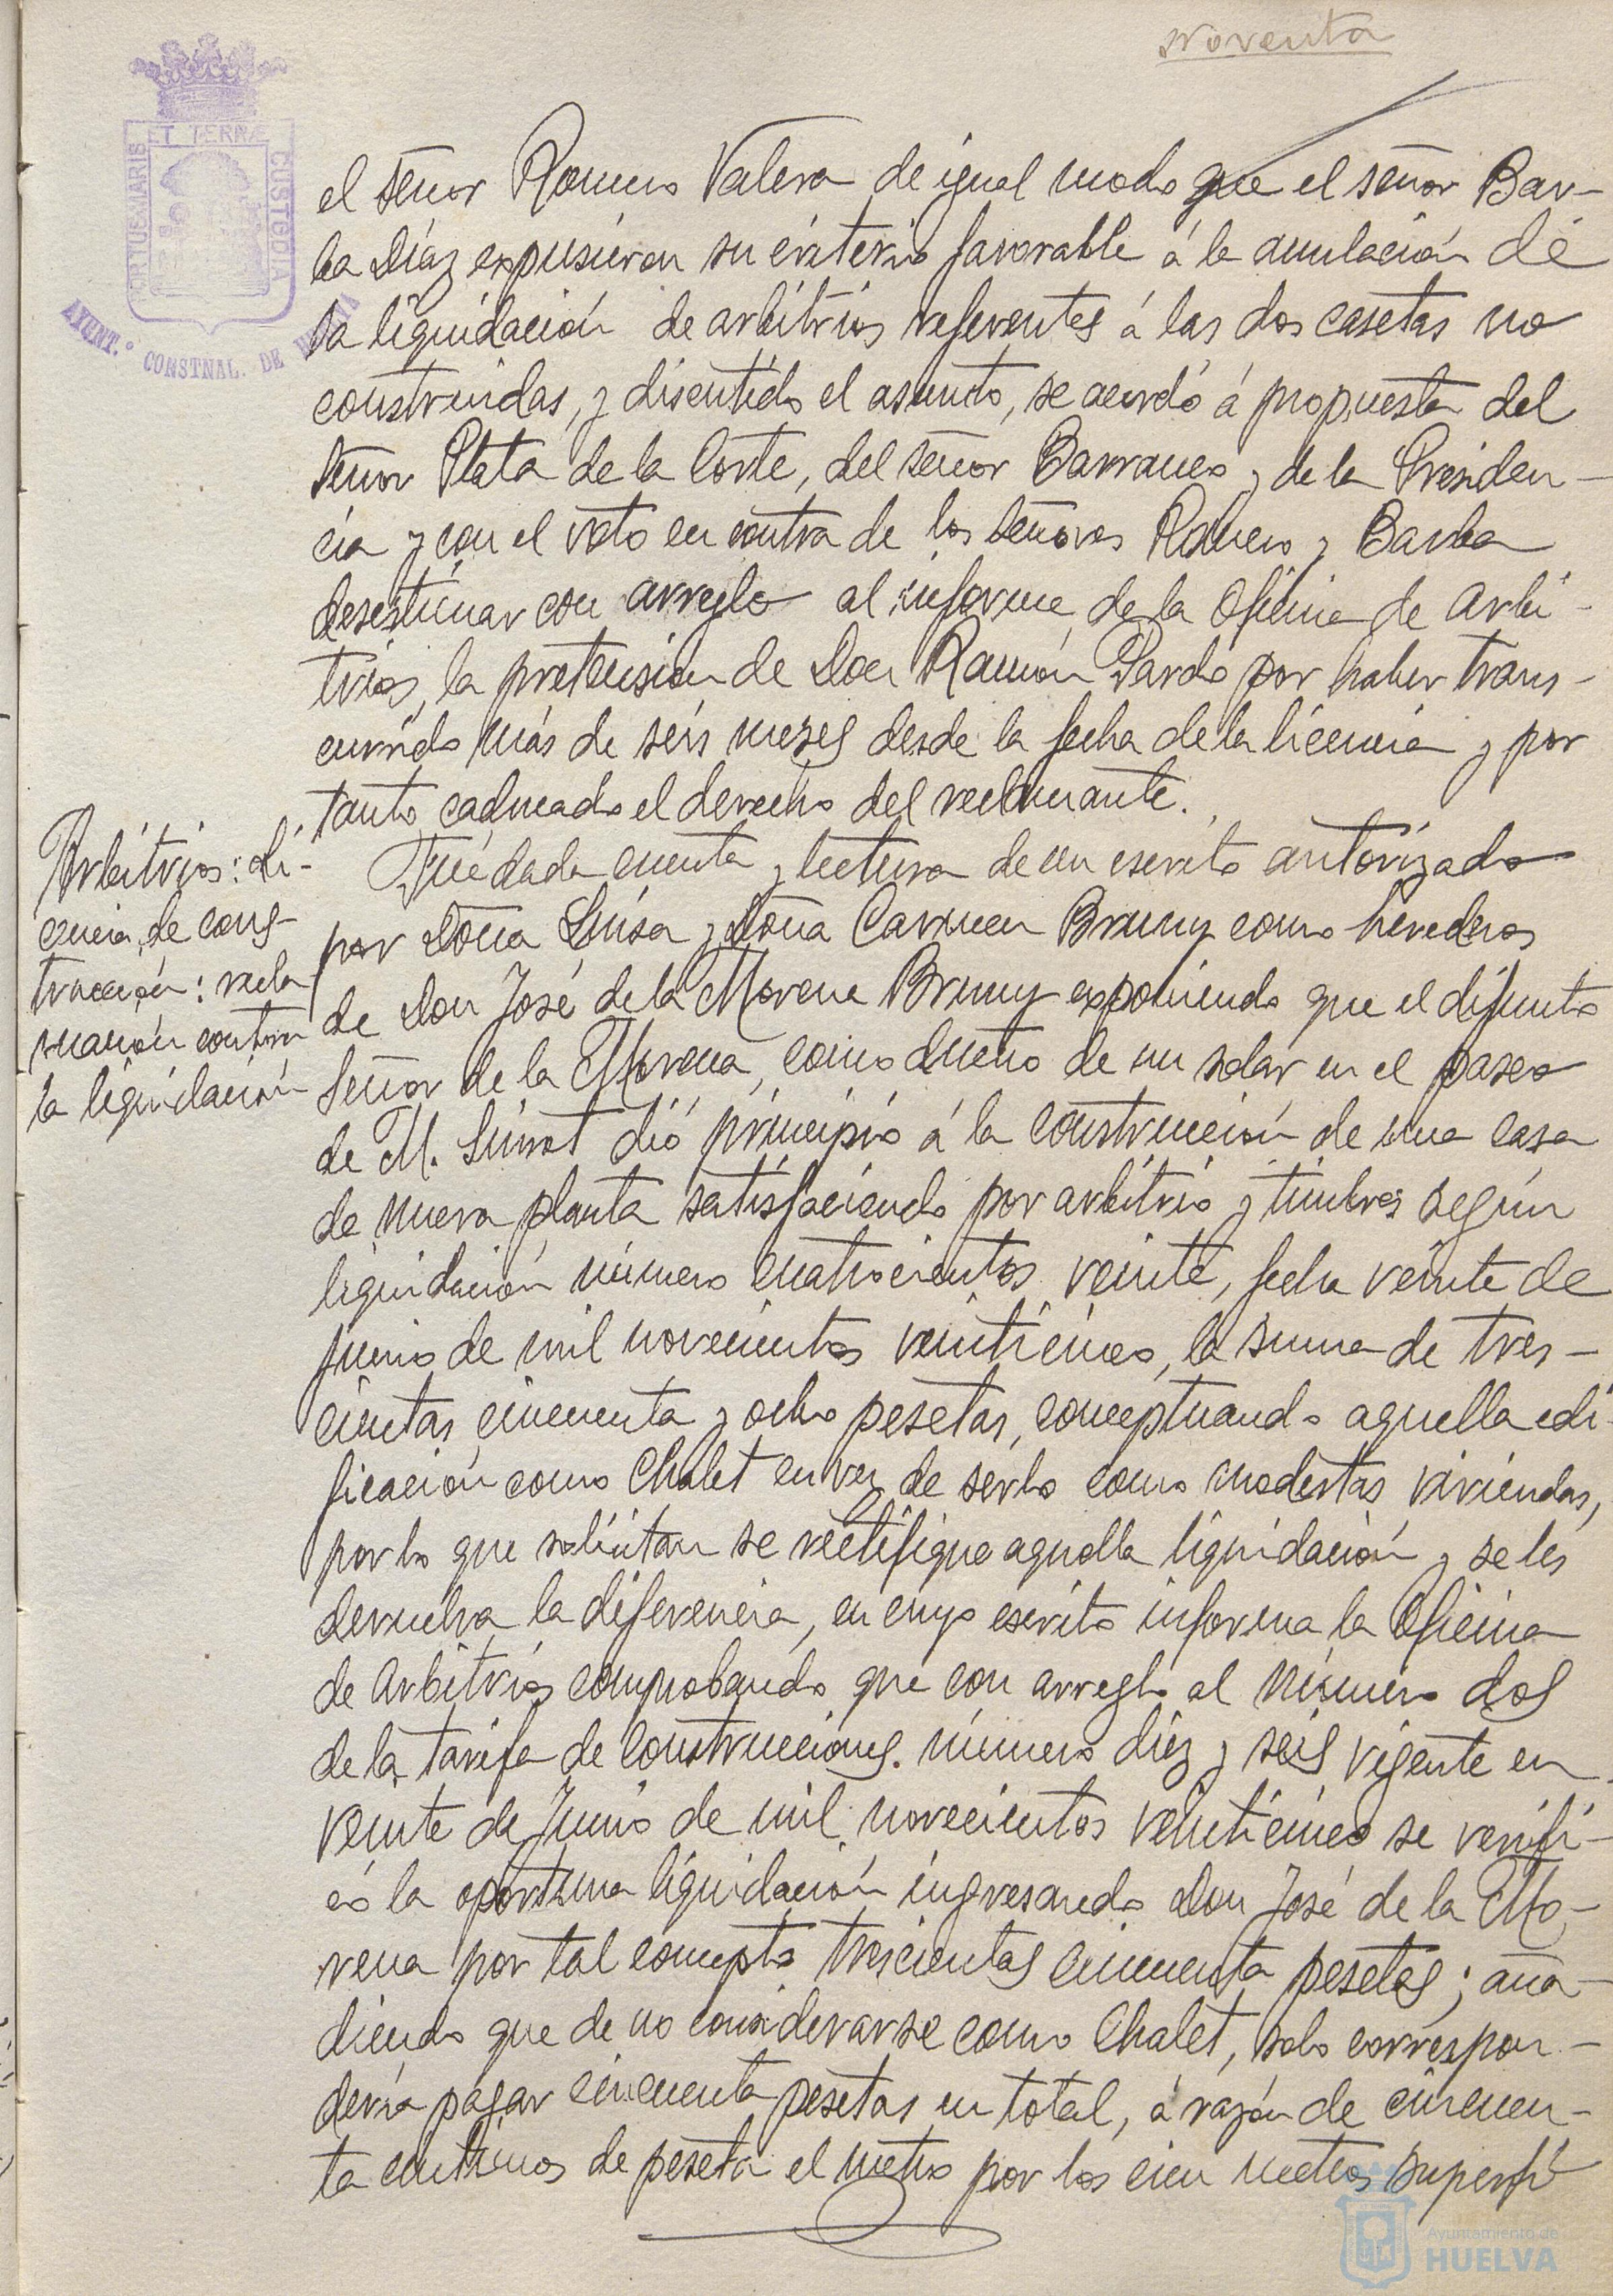 Noventa
PORTUS MARIS ET TERRÆ CUSTODIA
AYUNT.º CONSTNAL. DE HUELVA
el señor Romero Valera de igual modo que el señor Bar-
ba Díaz expusieron su criterio favorable á la anulación de
la liquidación de arbitrios referentes á las dos casetas no
construidas, y discutido el asunto, se acordó á propuesta del
señor Plata de la Corte, del señor Barranco y de la Presiden-
cia y con el voto en contra de los señores Romero y Barba
desestimar con arreglo al informe de la Oficina de Arbi-
trios, la pretensión de Don Ramón Pardo por haber trans-
currido más de seis meses desde la fecha de la licencia y por
tanto caducado el derecho del reclamante.
Arbitrios: Li-
cencia de cons-
trucción: recla
mación contra
la liquidación
Fué dada cuenta y lectura de un escrito autorizado
por Doña Luisa y Doña Carmen Bruny como herederos
de Don José de la Morena Bruny exponiendo que el difunto
Señor de la Morena, como dueño de un solar en el paseo
de M. Siurot dió principio á la construcción de una casa
de nueva planta satisfaciendo por arbitrio y timbres según
liquidación número cuatrocientos veinte, fecha veinte de
junio de mil novecientos veinticinco, la suma de tres-
cientas cincuenta y ocho pesetas, conceptuando aquella edi-
ficación como Chalet en vez de serlo como modestas viviendas,
por lo que solicitan se rectifique aquella liquidación y se les
devuelva la diferencia, en cuyo escrito informa la Oficina
de Arbitrios comprobando que con arreglo al número dos
de la tarifa de Construcciones. número diez y seis vigente en
veinte de Junio de mil novecientos veinticinco se verifi-
có la oportuna liquidación ingresando Don José de la Mo-
rena por tal concepto trescientas cincuenta pesetas; aña-
diendo que de no considerarse como Chalet, solo correspon-
dería pagar cincuenta pesetas en total, á razón de cincuen-
ta céntimos de peseta el metro por los cien metros superfi
Ayuntamiento de
HUELVA